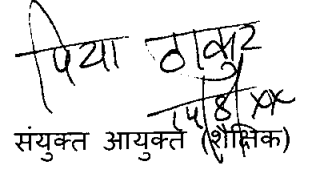 पिया ठाकुर
15/8/xx
संयुक्त आयुक्त (शैक्षिक)